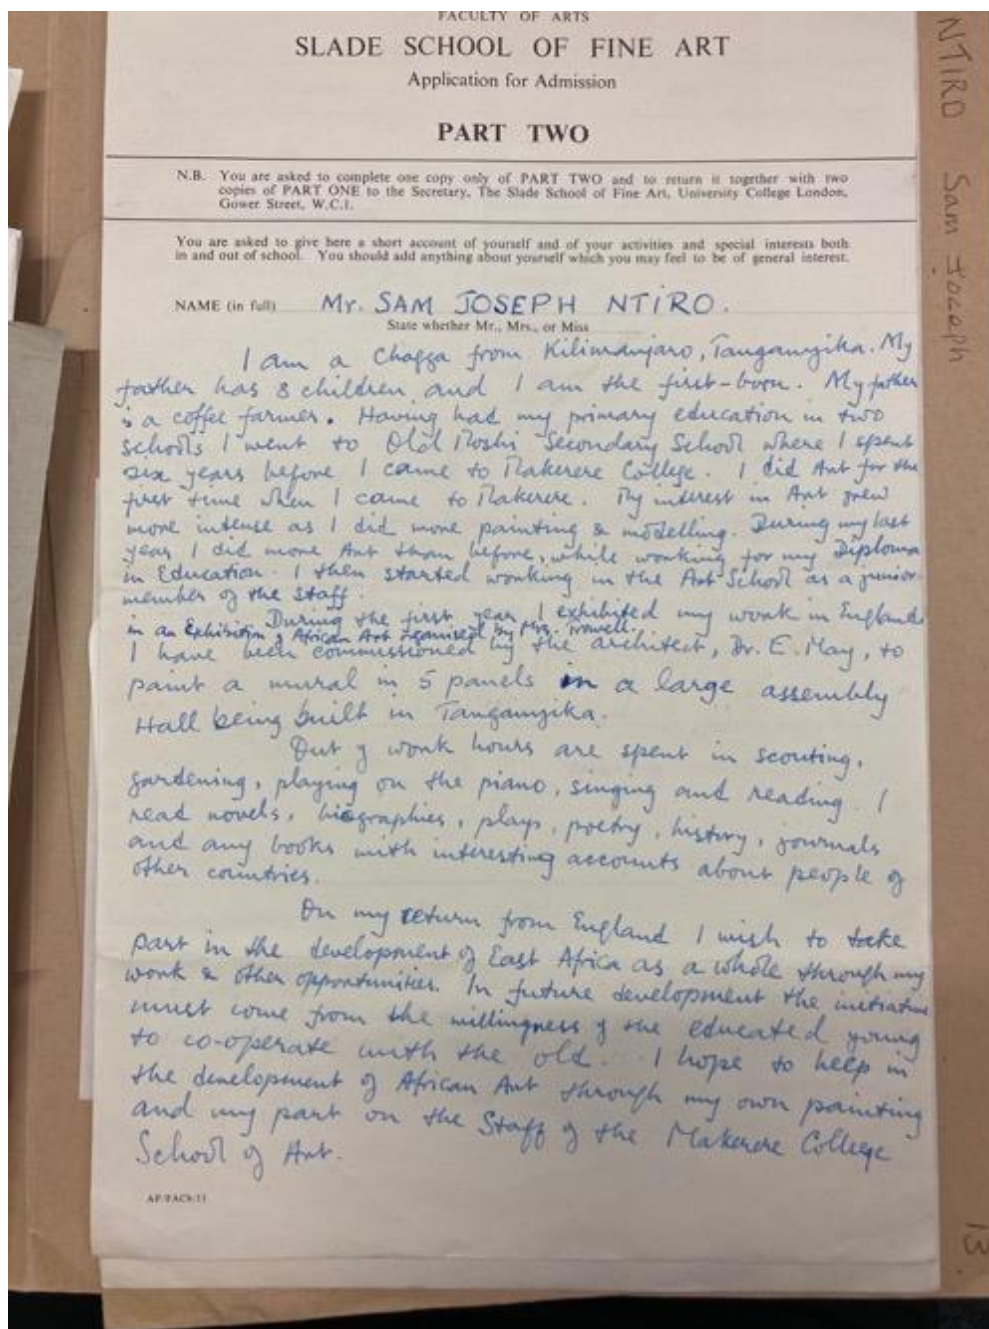 FACULTY OF ARTS
SLADE SCHOOL OF FINE ART
Application for Admission
PART TWO
N.B. You are asked to complete one copy only of PART TWO and to return it together with two
copies of PART ONE to the Secretary, The Slade School of Fine Art, University College London,
Gower Street, W.C.1.
You are asked to give here a short account of yourself and of your activities and special interests both
in and out of school. You should add anything about yourself which you may feel to be of general interest.
NAME (in full) Mr. SAM JOSEPH NTIRO.
State whether Mr., Mrs., or Miss
I am a Chagga from Kilimanjaro, Tanganyika. My
father has 8 children and I am the first-born. My father
is a coffee farmer. Having had my primary education in two
schools I went to Old Moshi Secondary School where I spent
six years before I came to Makerere College. I did Art for the
first time when I came to Makerere. My interest in Art grew
more intense as I did more painting & modelling. During my last
year I did more Art than before, while working for my Diploma
in Education. I then started working in the Art School as a junior
member of the staff.
During the first year I exhibited my work in England
in an Exhibition of African Art organised by Mrs. Trowell.
I have been commissioned by the architect, Dr. E. May, to
paint a mural in 5 panels in a large assembly
Hall being built in Tanganyika.
Out of work hours are spent in scouting,
gardening, playing on the piano, singing and reading. I
read novels, biographies, plays, poetry, history, journals
and any books with interesting accounts about people of
other countries.
On my return from England I wish to take
part in the development of East Africa as a whole through my
work & other opportunities. In future development the initiative
must come from the willingness of the educated young
to co-operate with the old. I hope to help in
the development of African Art through my own painting
and my part on the Staff of the Makerere College
School of Art.
AP/FACh/11
NTIRO Sam Joseph
13